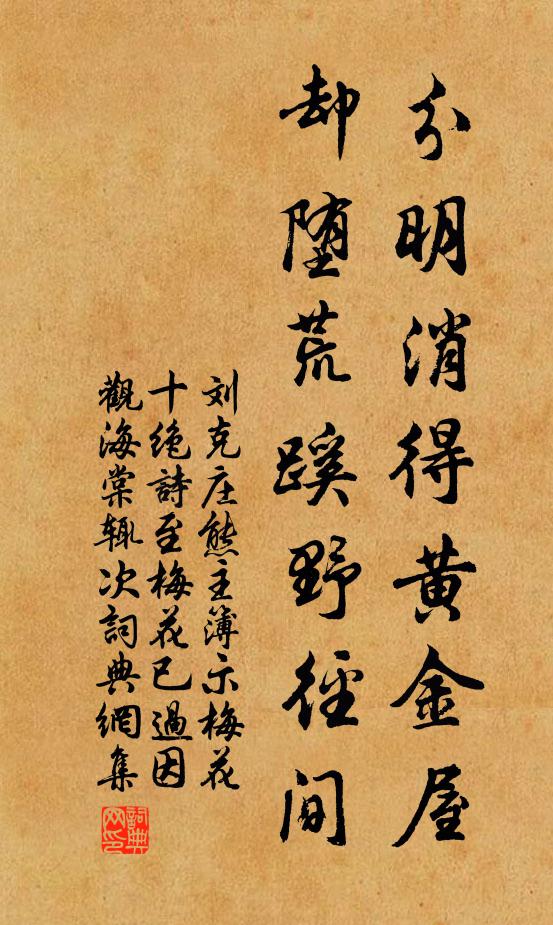 分明消得黄金屋
却堕荒蹊野径间
刘克庄熊主簿示梅花
十绝詩至梅花已過因
觀海棠辄次詞典網集
詞典网印